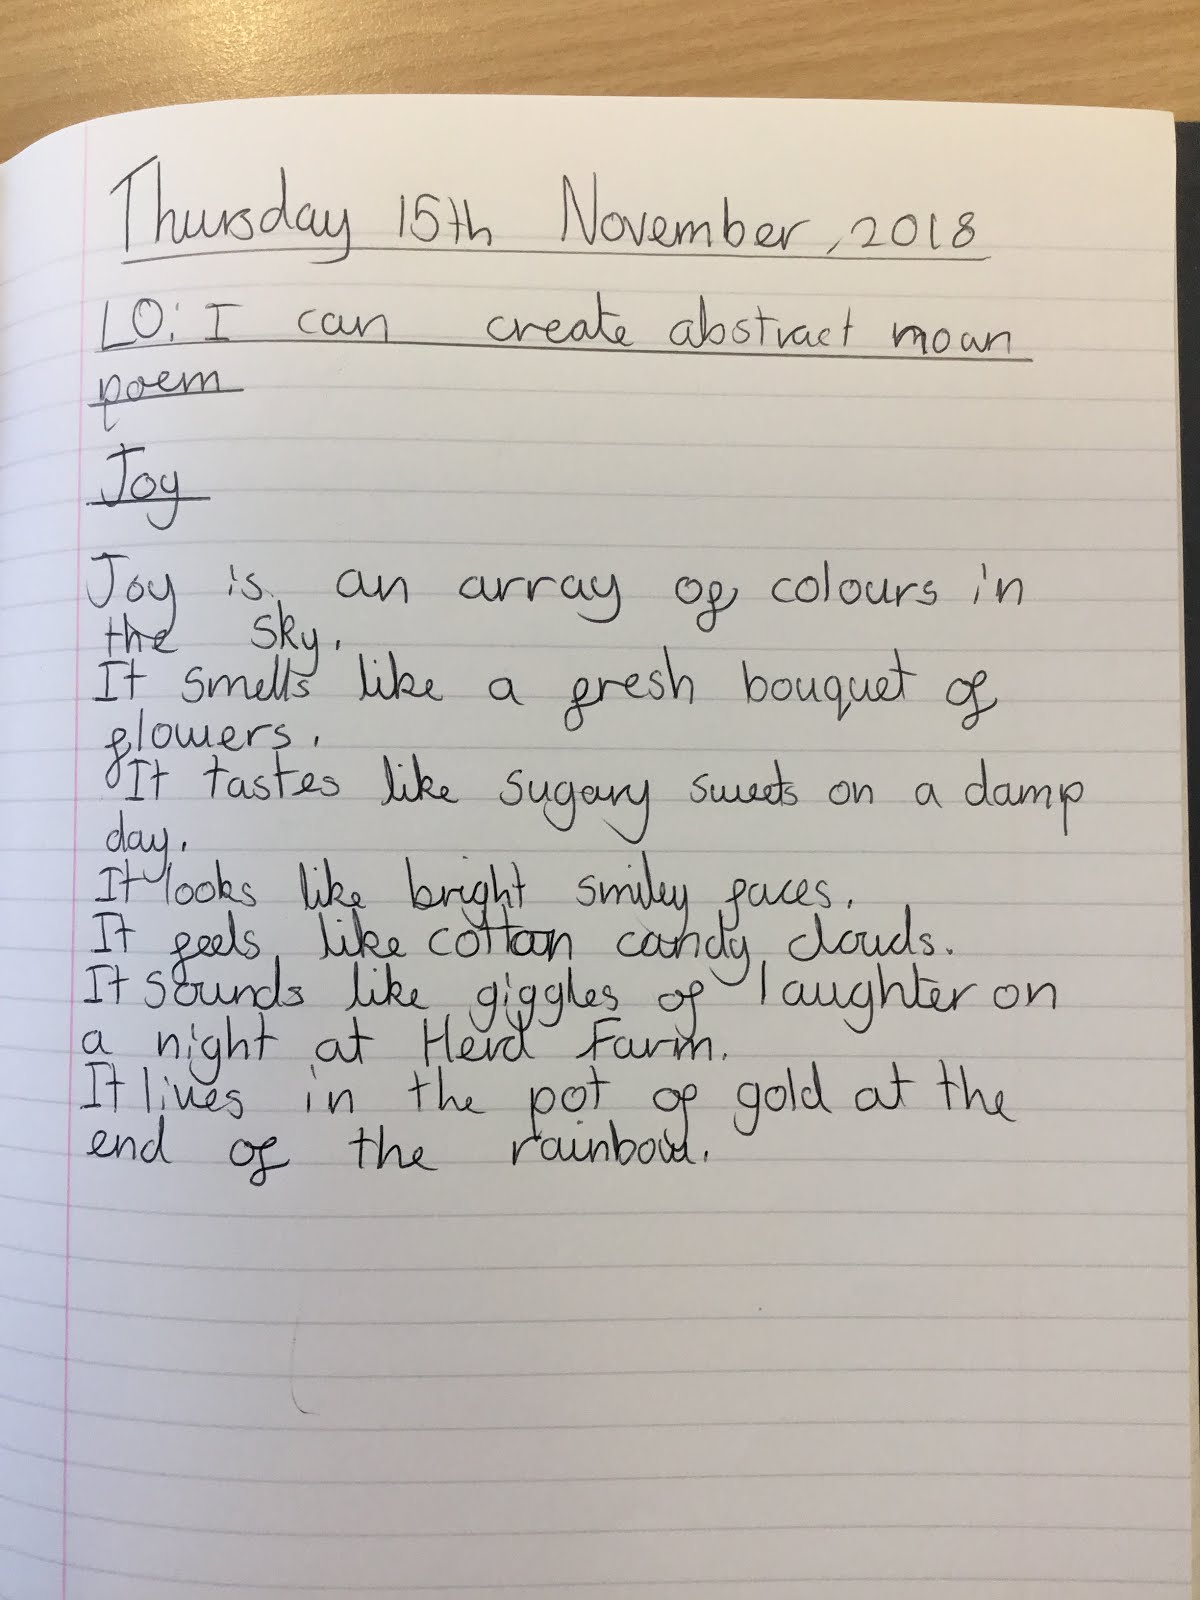 Thursday 15th November, 2018
LO: I can create abstract moan
poem
Joy
Joy is an array of colours in
the sky.
It smells like a fresh bouquet of
flowers.
It tastes like sugary sweets on a damp
day.
It looks like bright smiley faces.
It feels like cotton candy clouds.
It sounds like giggles of laughter on
a night at Herd Farm.
It lives in the pot of gold at the
end of the rainbow.